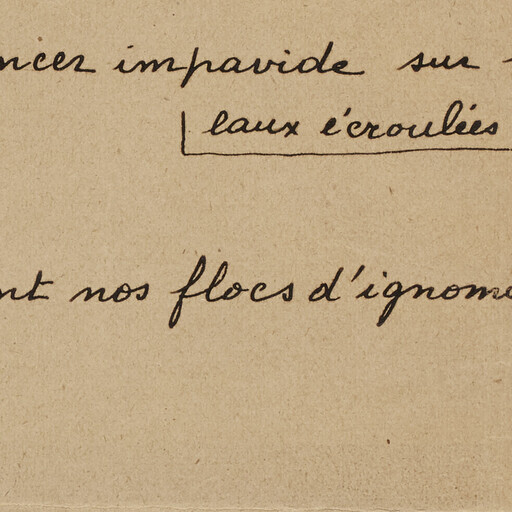 ncer impavide sur
eaux écroulées
nt nos flocs d'ignom